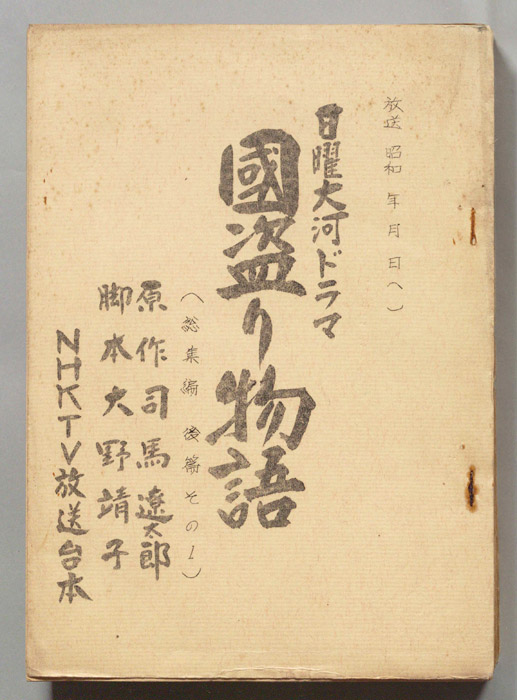 放送 昭和 年 月 日（ ）
日曜大河ドラマ
國盗り物語
（総集編 後篇その1）
原作 司馬遼太郎
脚本 大野靖子
NHKTV放送台本